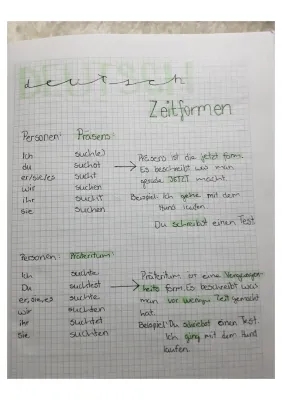 deutsch
Zeitformen
Personen: Präsens:
Ich such(e)
du suchst
er/sie/es sucht
wir suchen
ihr sucht
sie suchen
Präsens ist die jetzt form.
Es beschreibt was man
gerade JETZT macht.
Beispiel: Ich gehe mit dem
Hund laufen.
Du schreibst einen Test
Personen: Präteritum:
Ich suchte
Du suchtest
er, sie, es suchte
wir suchten
ihr suchtet
sie suchten
Präteritum ist eine Vergangen-
heits form. Es beschreibt was
man vor wenig Zeit gemacht
hat.
Beispiel: Du schreibst einen Test.
Ich ging mit dem Hund
laufen.